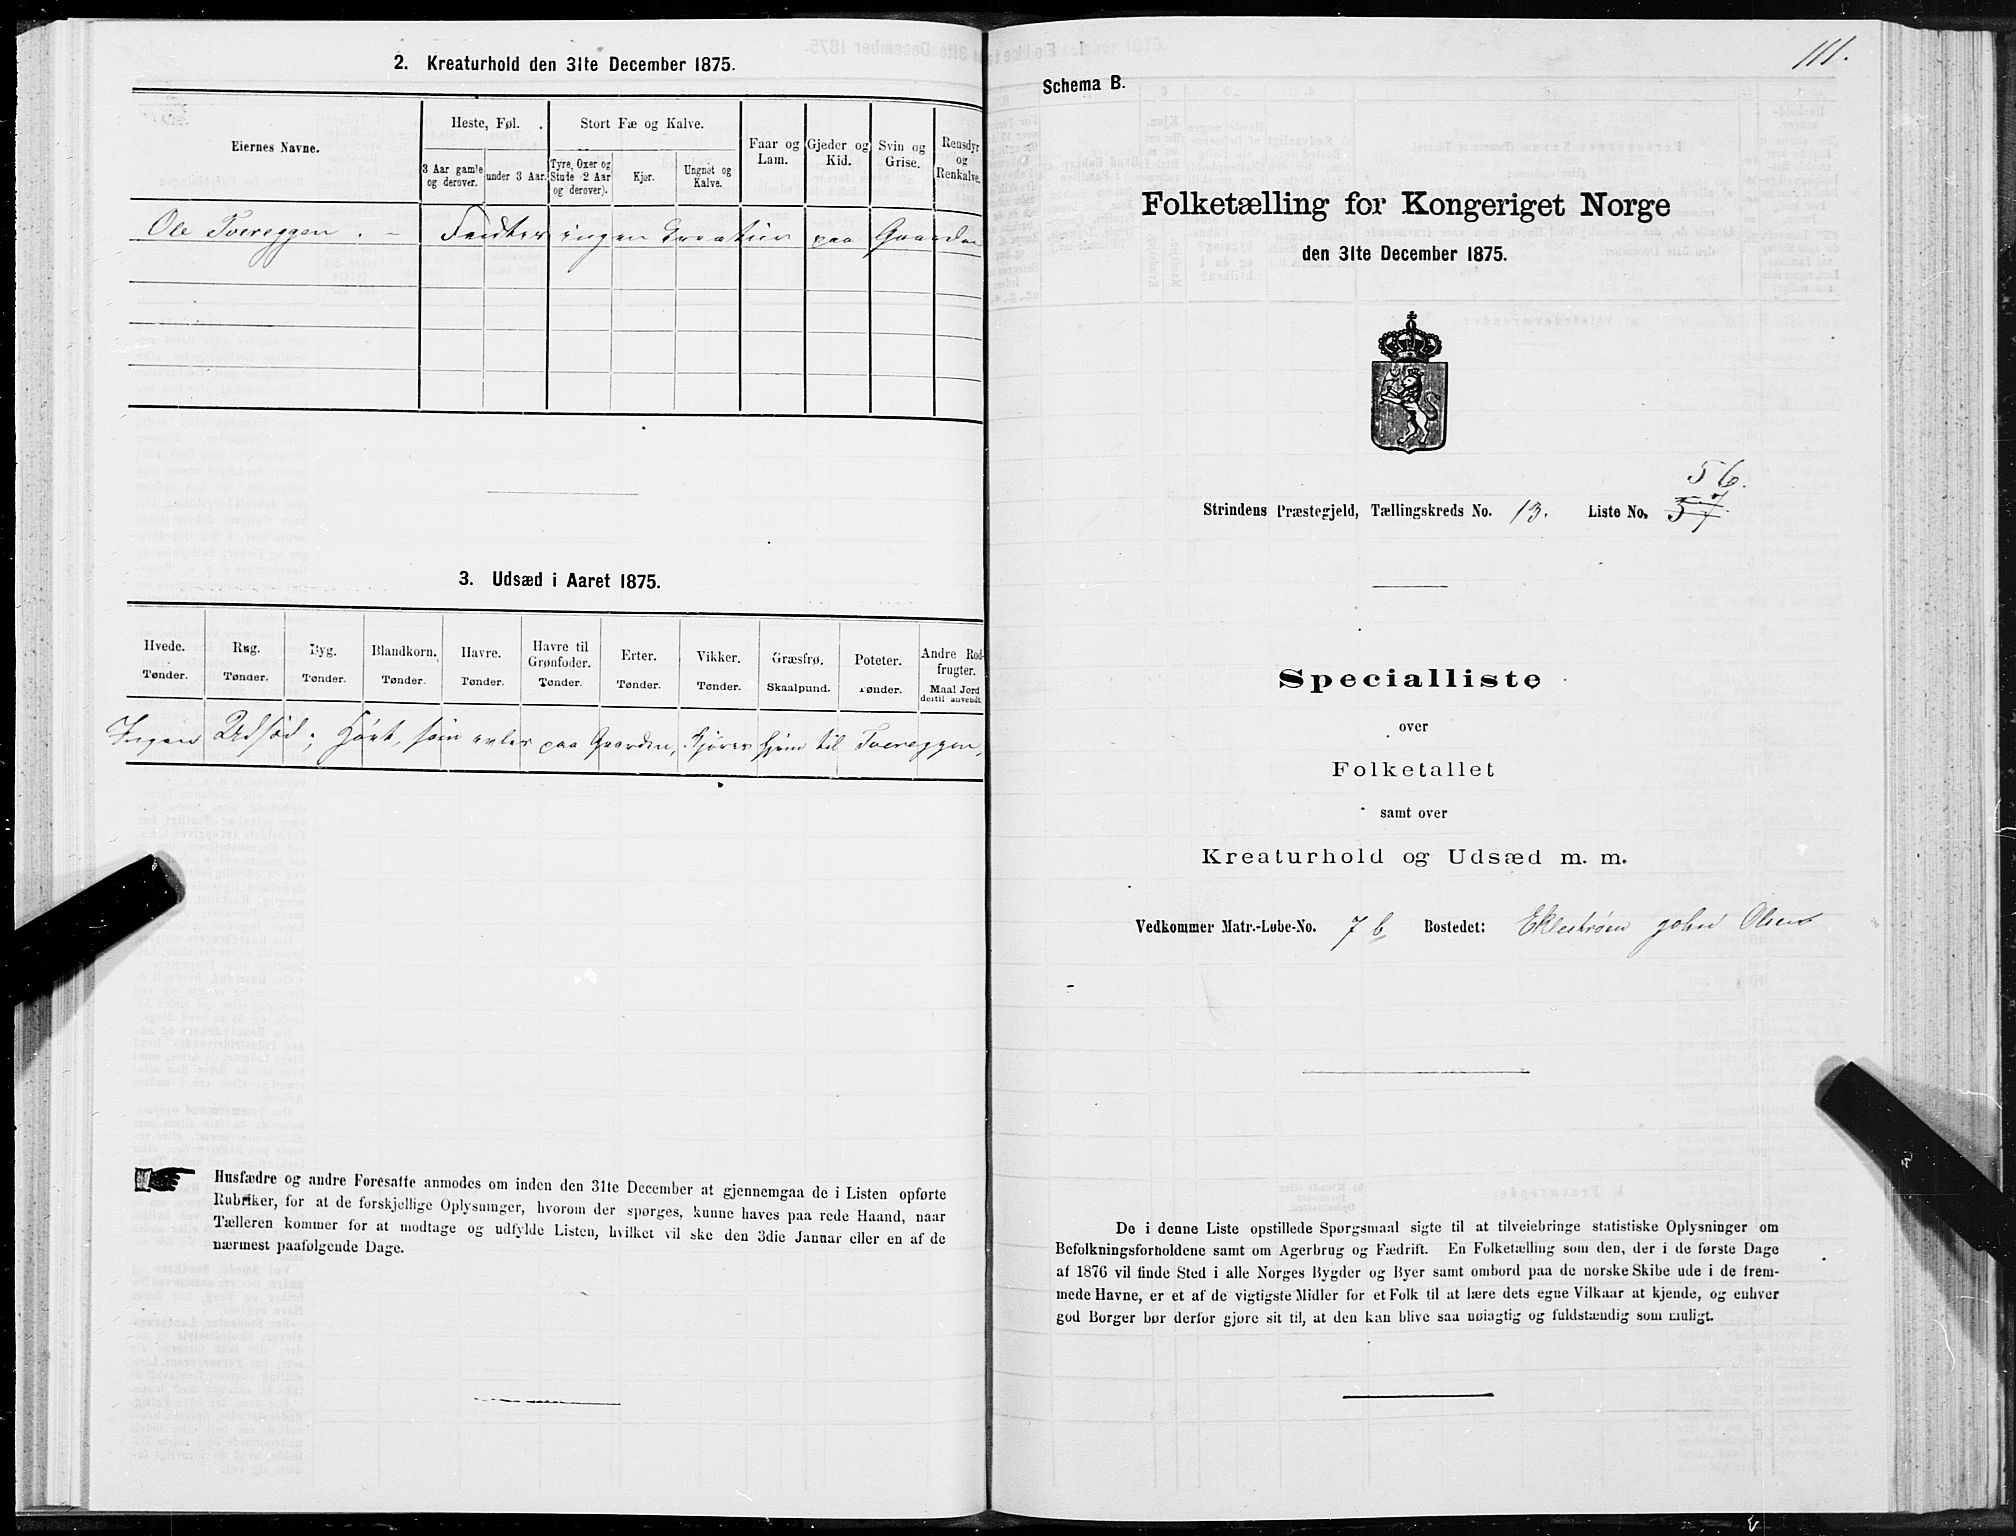 2. Kreaturhold den 31te December 1875.
Eiernes Navne.
Heste, Føl.
Stort Fæ og Kalve.
Faar og Lam.
Gjeder og Kid.
Svin og Grise.
Rensdyr og Renkalve.
3 Aar gamle og derover.
under 3 Aar.
Tyre, Oxer og Stude 2 Aar og derover).
Kjør.
Ungnøt og Kalve.
Ole Tvereggen . – Fødter ingen Creatur paa Gaarden
3. Udsæd i Aaret 1875.
Hvede. Rug. Byg. Blandkorn. Havre. Havre til Grønfoder. Erter. Vikker. Græsfrø. Poteter. Andre Rodfrugter.
Tønder. Tønder. Tønder. Tønder. Tønder. Tønder. Tønder. Tønder. Skaalpund. Tønder. Maal Jord dertil anvendt.
Ingen Udsæd; som avles paa Gaarden, kjøres hjem til Tvereggen,
Husfædre og andre Foresatte anmodes om inden den 31te December at gjennemgaa de i Listen opførte
Rubriker, for at de forskjellige Oplysninger, hvorom der spørges, kunne haves paa rede Haand, naar
Tælleren kommer for at modtage og udfylde Listen, hvilket vil ske den 3die Januar eller en af de
nærmest paafølgende Dage.
111.
Schema B.
Folketælling for Kongeriget Norge
den 31te December 1875.
56.
Strindens Præstegjeld, Tællingskreds No. 13. Liste No. 57.
Specialliste
over
Folketallet
samt over
Kreaturhold og Udsæd m. m.
Vedkommer Matr.-Løbe-No. 7 b Bostedet: Eklestrøm John Olsen
De i denne Liste opstillede Spørgsmaal sigte til at tilveiebringe statistiske Oplysninger om
Befolkningsforholdene samt om Agerbrug og Fædrift. En Folketælling som den, der i de første Dage
af 1876 vil finde Sted i alle Norges Bygder og Byer samt ombord paa de norske Skibe ude i de frem-
mede Havne, er et af de vigtigste Midler for et Folk til at lære dets egne Vilkaar at kjende, og enhver
god Borger bør derfor gjøre sit til, at den kan blive saa nøiagtig og fuldstændig som muligt.